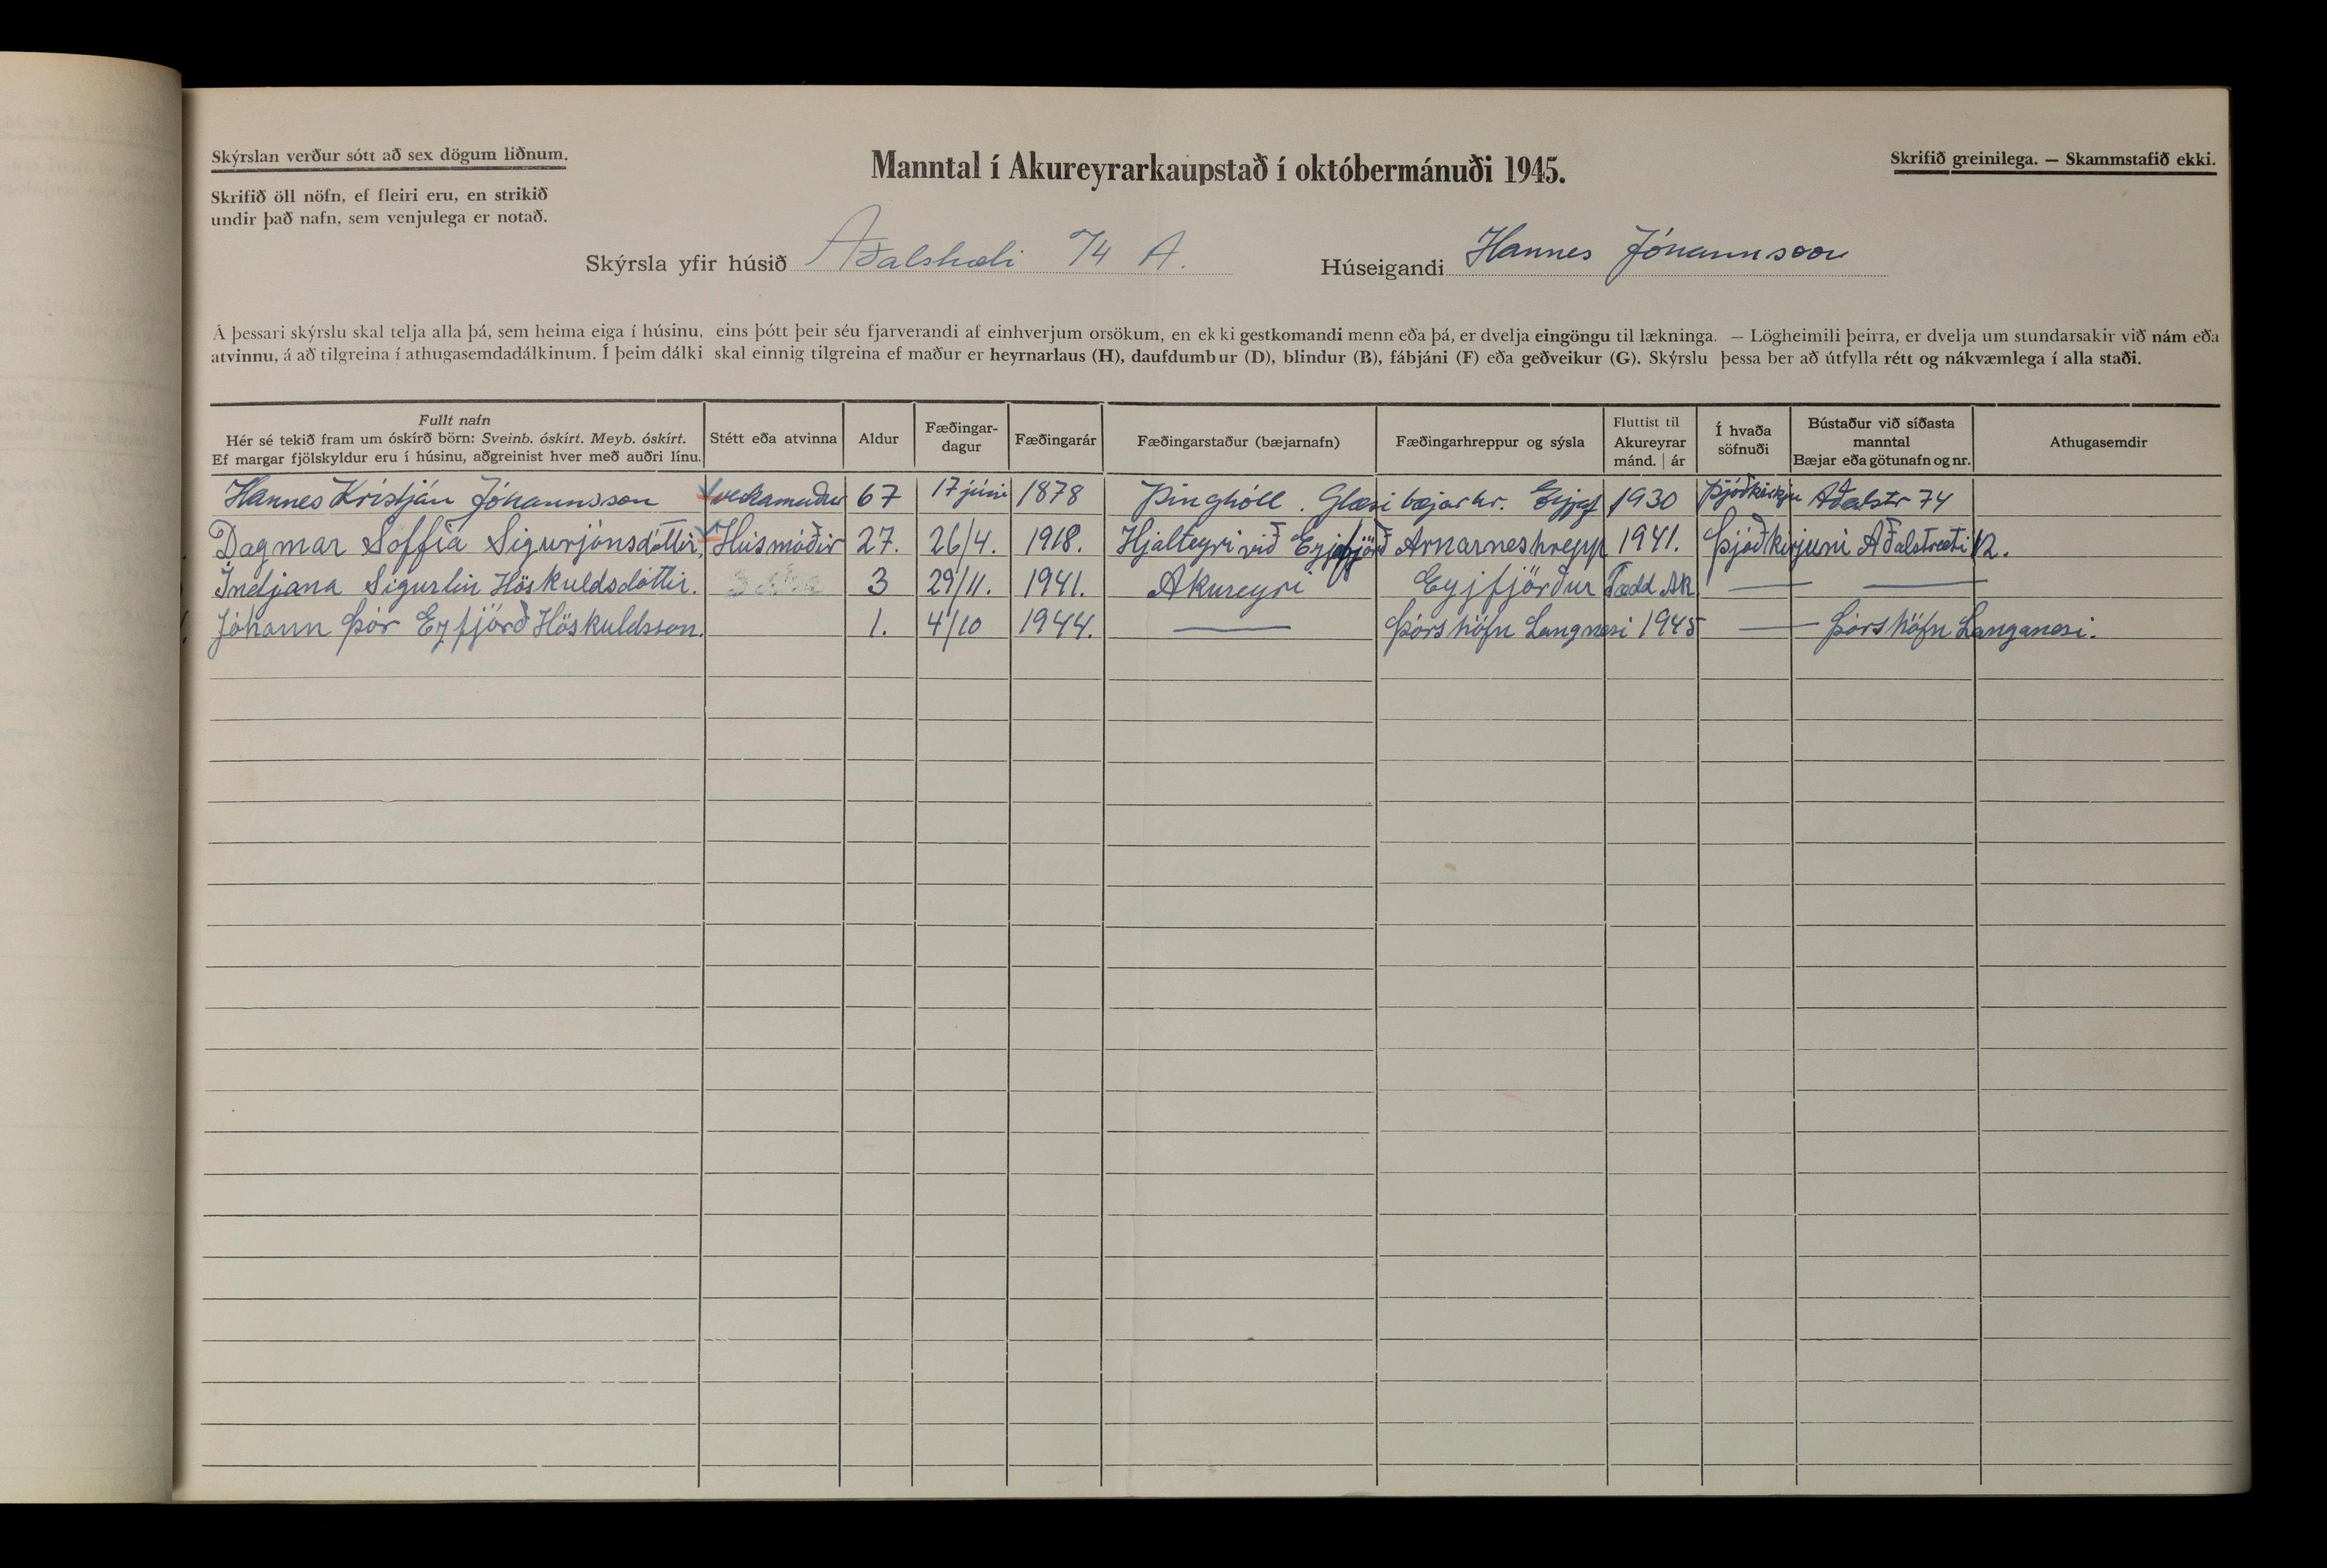 Skýrslan verður sótt að sex dögum liðnum.
Skrifið öll nöfn, ef fleiri eru, en strikið
undir það nafn, sem venjulega er notað.
Manntal í Akureyrarkaupstað í októbermánuði 1945.
Skrifið greinilega. — Skammstafið ekki.
Skýrsla yfir húsið Aðalstræti 74 A. Húseigandi Hannes Jóhannsson
Á þessari skýrslu skal telja alla þá, sem heima eiga í húsinu, eins þótt þeir séu fjarverandi af einhverjum orsökum, en ekki gestkomandi menn eða þá, er dvelja eingöngu til lækninga. — Lögheimili þeirra, er dvelja um stundarsakir við nám eða
atvinnu, á að tilgreina í athugasemdadálkinum. Í þeim dálki skal einnig tilgreina ef maður er heyrnarlaus (H), daufdumbur (D), blindur (B), fábjáni (F) eða geðveikur (G). Skýrslu þessa ber að útfylla rétt og nákvæmlega í alla staði.
Fullt nafn
Hér sé tekið fram um óskírð börn: Sveinb. óskírt. Meyb. óskírt.
Ef margar fjölskyldur eru í húsinu, aðgreinist hver með auðri línu.
Stétt eða atvinna
Aldur
Fæðingar-
dagur
Fæðingarár
Fæðingarstaður (bæjarnafn)
Fæðingarhreppur og sýsla
Fluttist til
Akureyrar
mánd. | ár
Í hvaða
söfnuði
Bústaður við síðasta
manntal
Bæjar eða götunafn og nr.
Athugasemdir
Hannes Kristján Jóhannsson verkamaður 67 17 júní 1878 Þinghóll . Glæsibæjarhr. Eyjaf 1930 Þjóðkirkju Aðalstr 74
Dagmar Soffía Sigurjónsdóttir. Húsmóðir 27. 26/4. 1918. Hjalteyri við Eyjafjörð Arnarneshrepp 1941. Þjóðkirjuni Aðalstræti 12.
Indjana Sigurlín Höskuldsdóttir. 3 29/11. 1941. Akureyri Eyjfjörður Fædd Ak — —
Jóhann Þór Eyfjörð Höskuldsson. 1. 4/10 1944. — Þórshöfn Langnesi 1945 — Þórshöfn Langanesi.